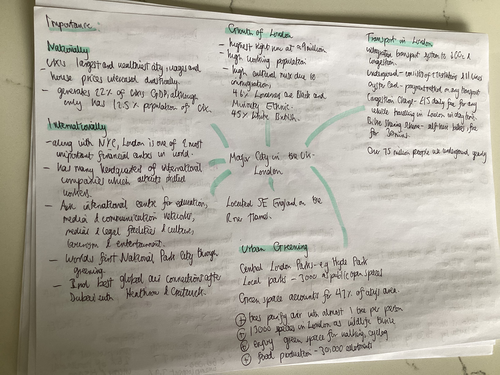 Importance:
Nationally
UKs largest and wealthiest city, wages and
house prices increased drastically.
- generates 22% of UKs GDP, although
only has 12.5% population of UK.
Internationally
- along with NYC, London is one of 2 most
important financial centres in world.
- has many headquarters of international
companies which attracts skilled
workers.
- An international centre for education,
media & communication networks,
medical & legal facilities & culture,
tourism & entertainment.
- Worlds first National Park City through
greening.
- 2nd best global air connections after
Dubai with Heathrow & Gatwick.
Growth of London
- highest right now at 9 million
- high working population
- high cultural due to
immigration
46% Londoners are Black and
Minority Ethnic.
45% White British.
Transport in London
integrated transport system to CO2 &
congestion.
Underground - 11 lines
Oyster card - on any transport
Congestion Charge - £15 daily fee for any
vehicle travelling in London in day time.
Bike sharing scheme - self hire bikes free
for 30mins.
Over 75 million people use underground yearly
Major City in the UK -
London
Located SE England on the
River Thames.
Urban Greening
Central London Parks - e.g Hyde Park
Local parks - 3000 as public open spaces
Green space accounts for 47% of citys area.
① trees purify air with almost 1 tree per person
② 13000 species in London as wildlife thrive
③ Enjoy green space for walking, cycling
④ food production - 30,000 allotments